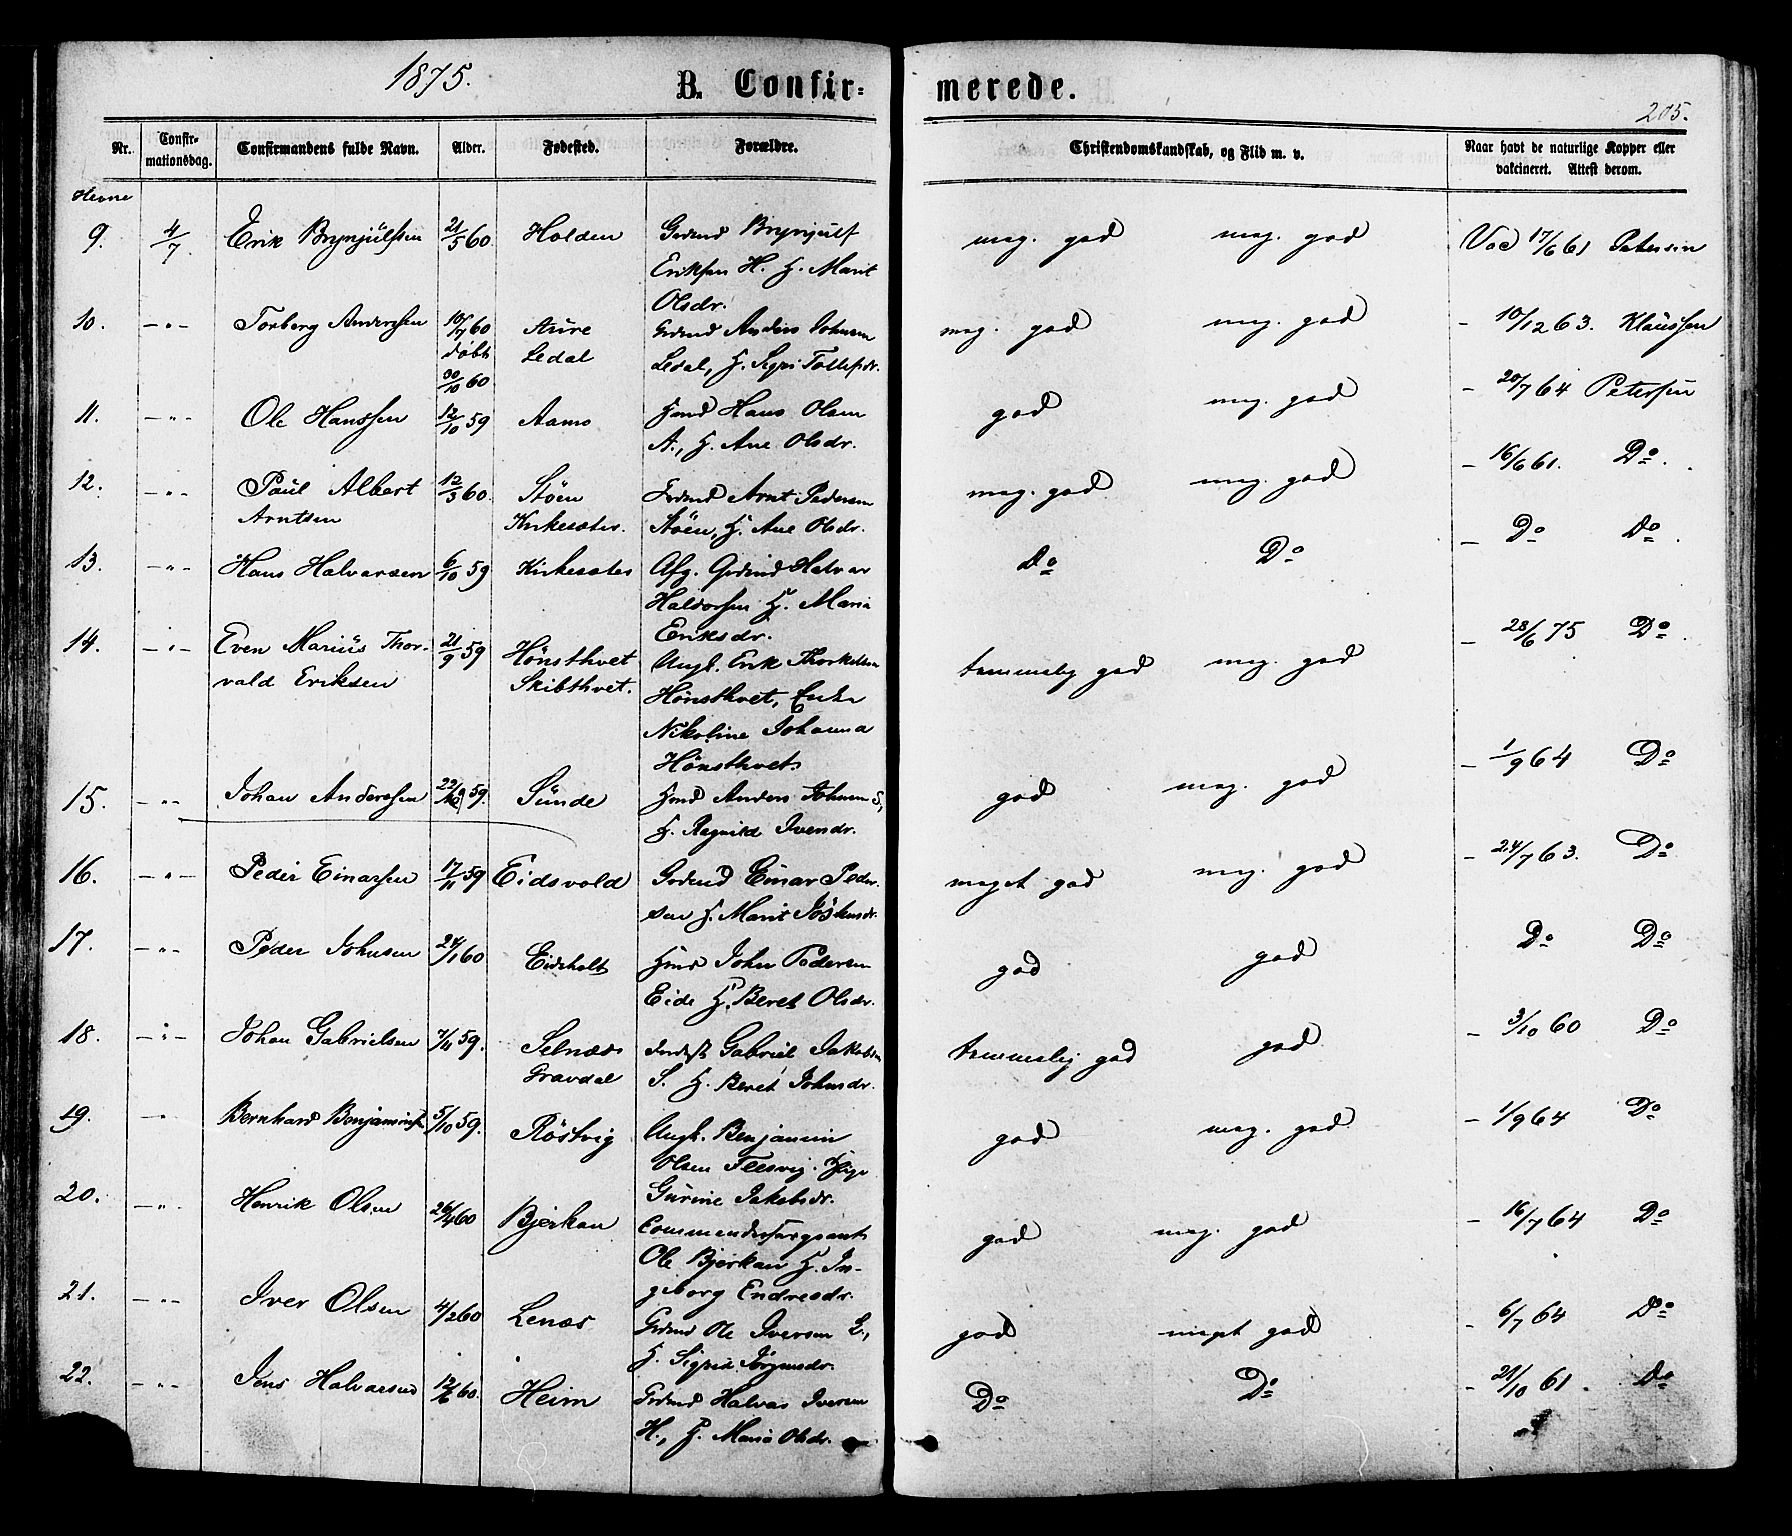 1875.
B. Confir-
merede.
205.
Nr. Confir-mationsdag. Confirmandens fulde Navn. Alder. Fødested. Forældre. Christendomskundskab, og Flid m. v. Naar havt de naturlige Kopper eller vakcineret. Attest derom.
Hevne
9. 4/7 Erik Brynjülfsen 21/5 60 Holden Grdmd Brynjülf meg. god meg. god Vac 17/6 61 Petersen
Eriksen H. H. Marit
Olsdr.
10. -"- Torberg Anderssen 10/7 60 Aüre Grdmd Anders Johnsen meg. god meg. god - 10/12 63. Klaüssen
døbt Ledal Ledal, H. Sigri Tollefsdr.
30/10 60
11. -"- Ole Hanssen 12/10 59 Aamo Hmd Hans Olsen god meg. god - 20/7 64 Petersen
A., H. Ane Olsdr.
12. -"- Paül Albert 12/3 60. Stöen Grdmd Arnt Pedersen meg. god meg. god - 16/6 61. Do.
Arntsen Kirkesæter. Stöen, H. Ane Olsdr.
13. -"- Hans Halvarsen 6/10 59 Kirkesæter Afg. Grdmd Halvar Do Do - Do Do.
Haldorsen H. Maria
Eriksdr.
14. -"- Even Mariüs Thor- 21/9 59 Hönsthvet Ungk. Erik Thorkelsen temmelig god meg. god - 28/6 75 Do.
vald Eriksen Skibthvet. Hönsthvet, Enke
Nikoline Johanna
Hönsthvet.
15. -"- Johan Anderssen 22/ 59. Sünde Hmd Anders Johnsen S., god meg. god - 1/9 64 Do
H. Ragnild Iversdr.
16. -"- Peder Einarsen 17/11 59 Eidsvold Grdmd Einar Peder- meget god meg. god - 24/7 63. Do
sen H. Marit
17. -"- Peder Johnsen 24/1 60 Eidsholt Hmd John Pedersen god god Do Do
Eide H. Beret Olsdr.
18. -"- Johan Gabrielsen 7/11 59. Selnæs Inderst Gabriel Jakobsen temmelig god god - 3/10 60 Do
Gravdal S. H. Beret Johnsdr.
19. " Bernhard Benjaminsen 5/10 59. Röstvig Ungk. Benjamin god meg. god - 1/9 64 Do
Olsen Teesvig. Pige
Gürine Jakobsdr.
20. -"- Henrik Olsen 26/4 60 Bjerkan Commandersergeant god meg. god - 16/7 64 Do
Ole Bjerkan H. In-
geborg Endresdr.
21. -"- Iver Olsen 4/2 60 Lenæs Grdmd Ole Iversen L., god meget god - 6/7 64 Do
H. Sigrid Jörgensdr.
22. -"- Jens Halvarsen 12/6 60. Heim Grdmd Halvar Iversen Do Do - 21/10 61. Do
H., H. Maria Olsdr.